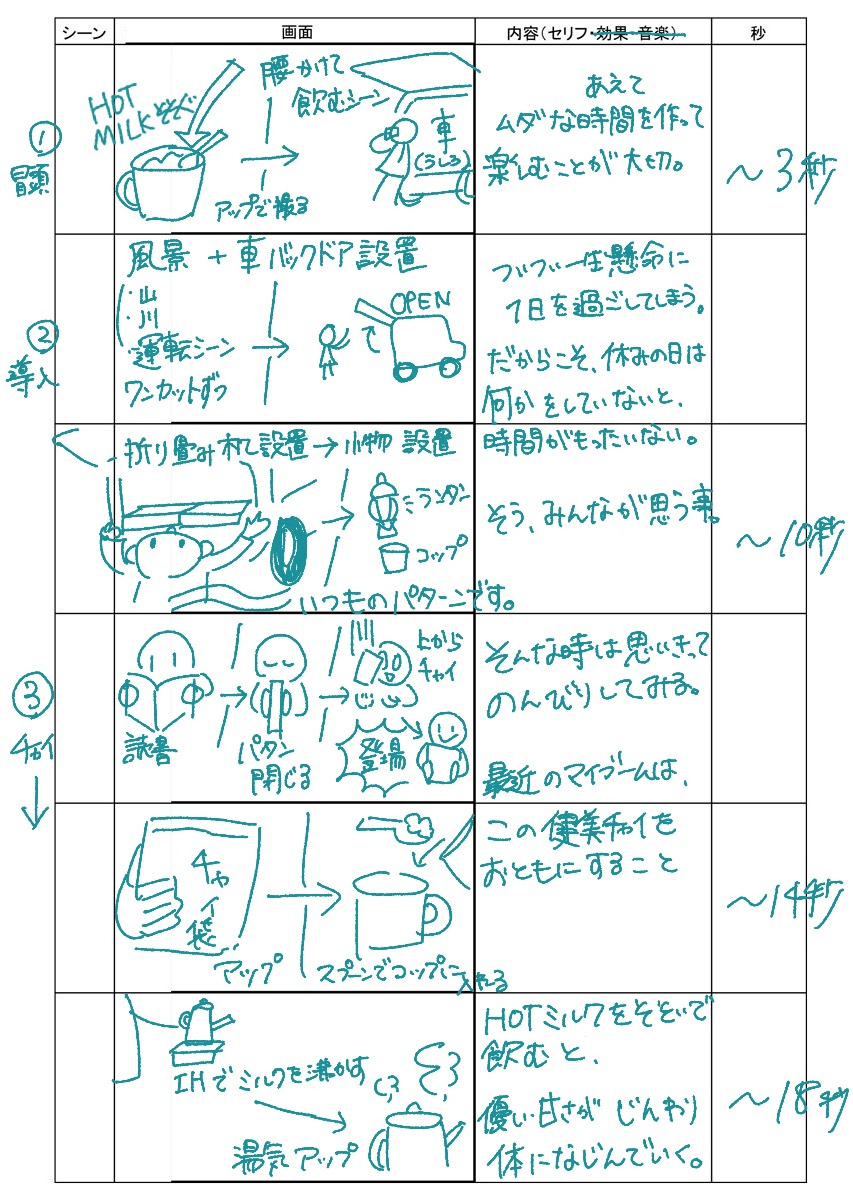 シーン 画面 内容(セリフ・効果・音楽) 秒
① 冒頭
HOT MILKそそぐ
アップで撮る
腰かけて
飲むシーン
車
(うしろ)
あえて
ムダな時間を作って
楽しむことが大切。
〜3秒
② 導入
風景 + 車バックドア設置
・山
・川
・運転シーン
ワンカットずつ
OPEN
ついつい一生懸命に
1日を過ごしてしまう。
だからこそ、休みの日は
何かをしていないと、
折り畳み机設置→小物設置
ミランタン
コップ
いつものパターンです。
時間がもったいない。
そう、みんなが思う事。
〜10秒
③ チャイ
読書
パタン
閉じる
上から
チャイ
登場
そんな時は思いきって
のんびりしてみる。
最近のマイブームは、
チャイ袋
アップ
スプーンでコップに入れる
この健美チャイを
おともにすること
〜14秒
IHでミルクを沸かす
湯気アップ
HOTミルクをそそいで
飲むと、
優しい甘さがじんわり
体になじんでいく。
〜18秒